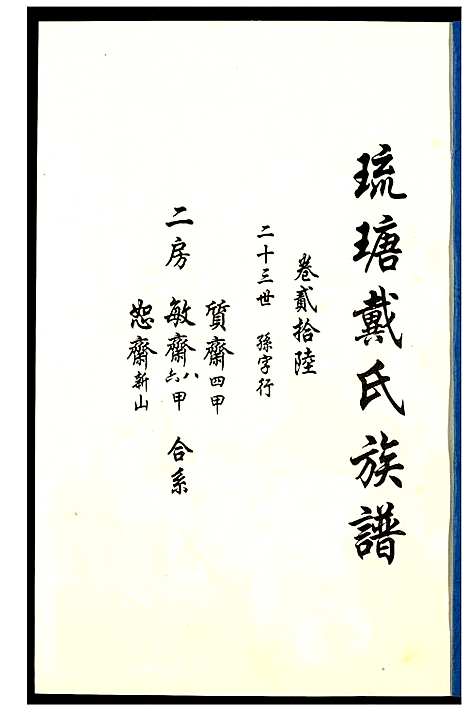 琉瑭戴氏族譜
卷貳拾陸
二十三世 孫字行
質齋四甲
二房 敏齋八六甲 合系
恕齋新山